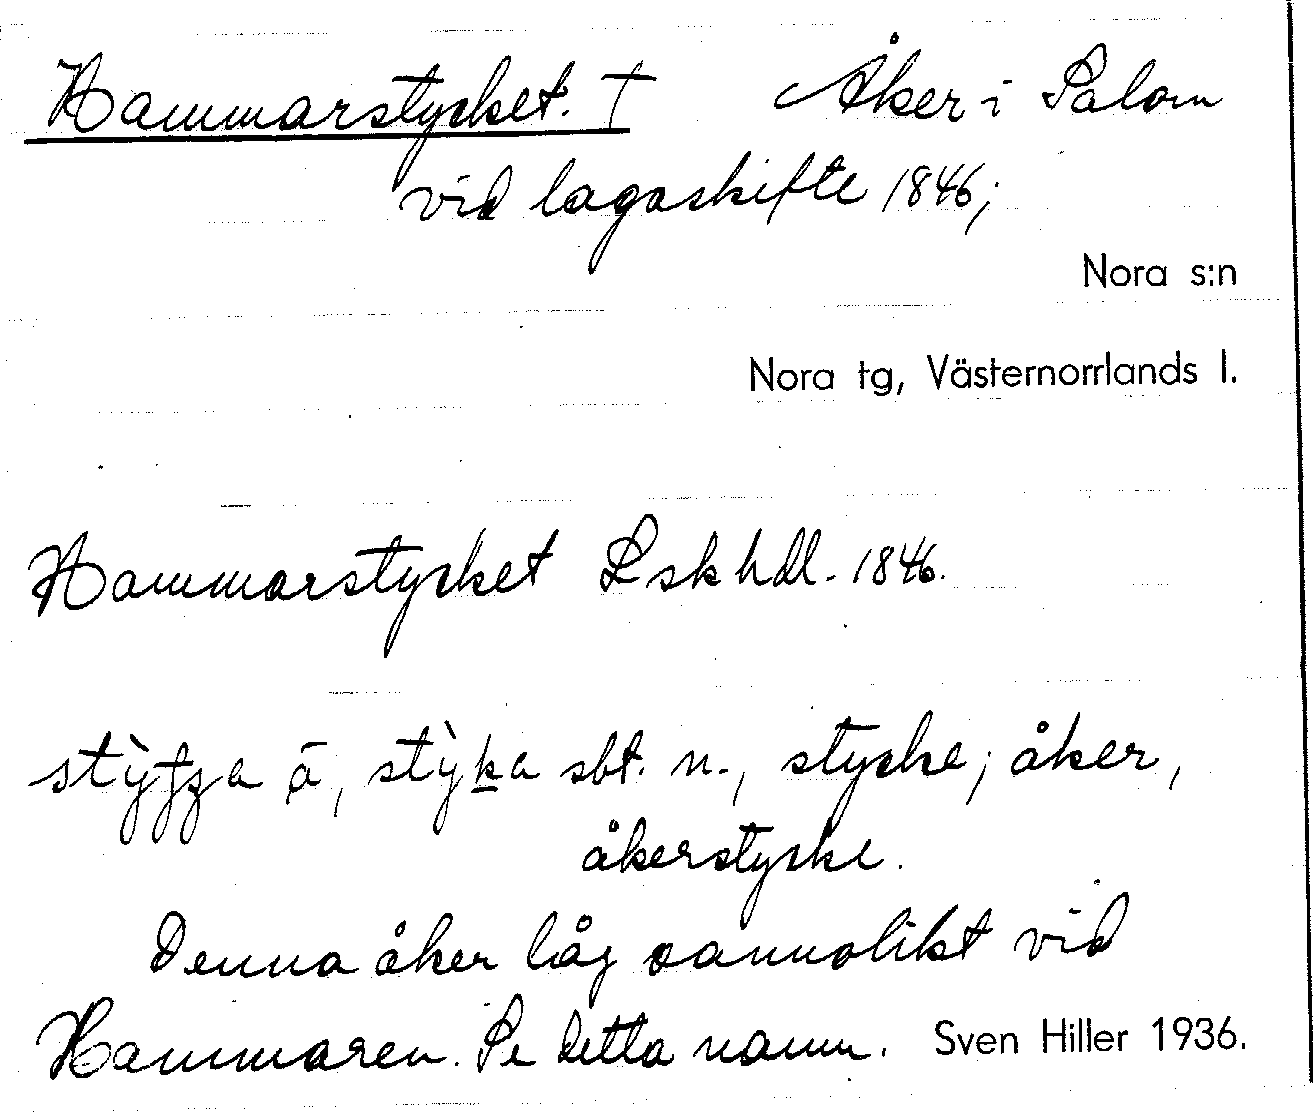 Hammarstycket. † Åker i Salom
vid lagaskifte 1846;
Nora s:n
Nora tg, Västernorrlands l.
Hammarstycket Lskhdl. 1846.
sbt. n., stycke; åker,
åkerstycke.
Denna åker låg sannolikt vid
Hammaren. Se detta namn. Sven Hiller 1936.